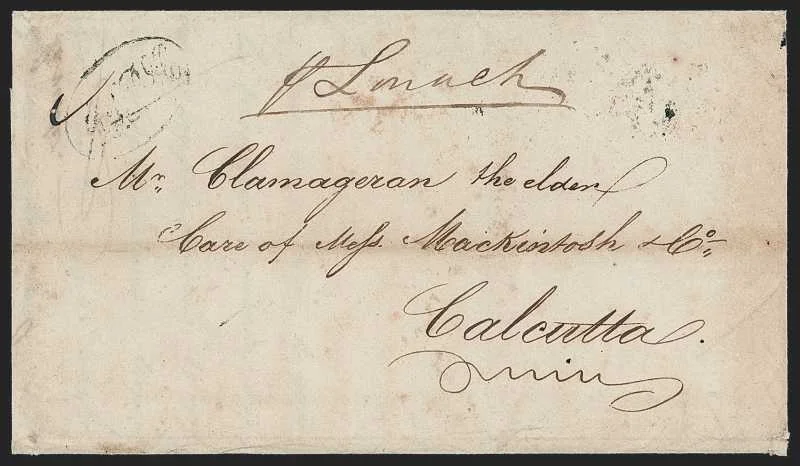 p Lonach
Mr. Clamageran the elder
Care of Mess. Mackintosh & Co.
Calcutta.